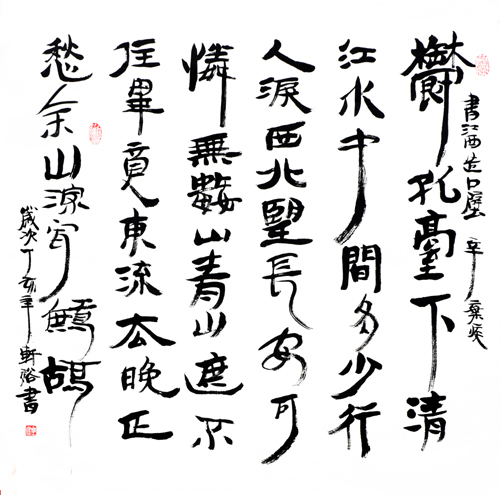 書江西造口壁 辛棄疾
鬱孤臺下清
江水中間多少行
人淚西北望長安可
憐無數山青山遮不
住畢竟東流去晚正
愁余山深聞鷓鴣
歲次丁亥年軒書